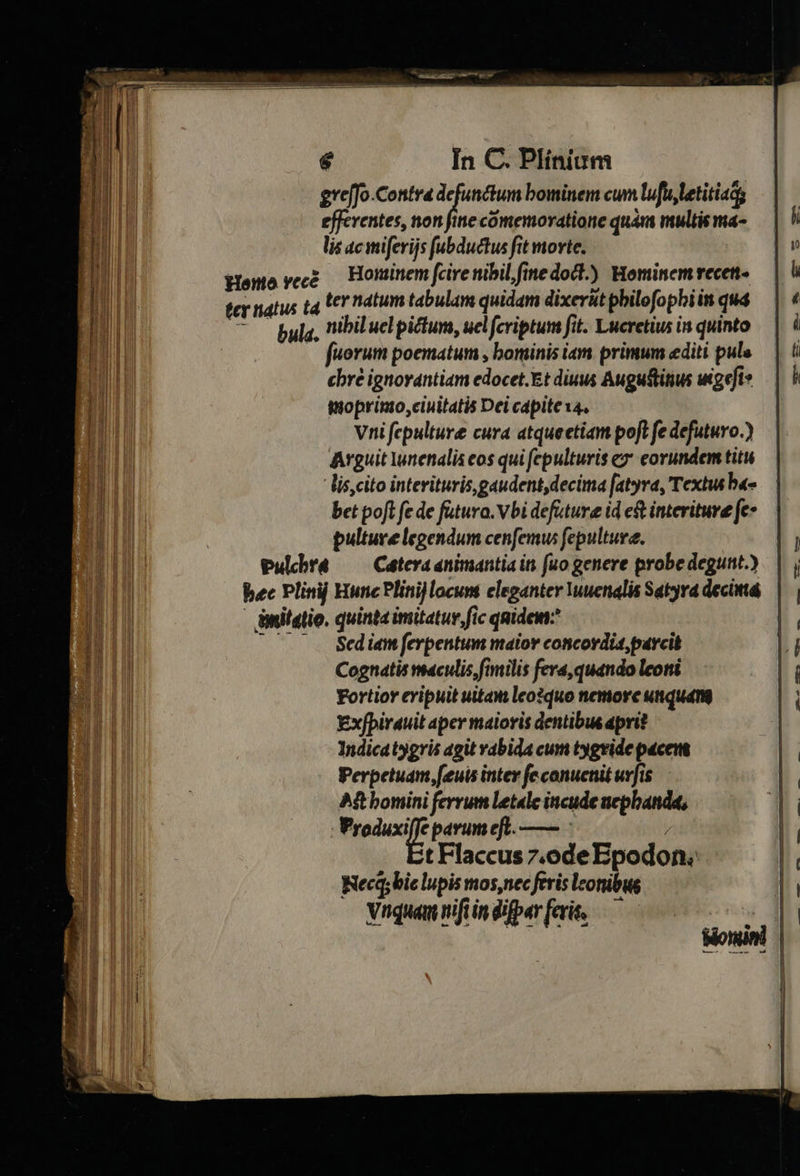 6 In C. Plinium
greſſo. Contra defunctum hominem cum luſu, letitiaq;
efferentes, non ſine cōmemoratione quàm multis ma-
lis ac miſerijs ſubductus ſit morte.
Homo recẽ Hominem ſcire nihil, ſine doct.) Hominem recen-
ter natus ta ter natum tabulam quidam dixerūt philoſophi in qua
bula. nihil uel pictum, uel ſcriptum ſit. Lucretius in quinto
ſuorum poematum, hominis iam primum æditi pul-
chrè ignorantiam edocet. Et diuus Auguſtinus uigeſi-
moprimo, ciuitatis Dei capite 14.
Vni ſepulturæ cura atque etiam poſt ſe defuturo.)
Arguit Iunenalis eos qui ſepulturis & eorundem titu
lis, cito interituris, gaudent, decima ſatyra, Textus ha-
bet poſt ſe de futuro. Vbi defuturæ id eſt interituræ ſe-
pulturæ legendum cenſemus ſepulturæ.
Pulchra Cætera animantia in ſuo genere probe degunt.)
hæc Plinij Hunc Plinij locum eleganter Iuuenalis Satyra decima
imitatio. quinta imitatur, ſic quidem:
Sed iam ſerpentum maior concordia, parcit
Cognatis maculis, ſimilis fera, quando leoni
Fortior eripuit uitam leo? quo nemore unquam
Exſpirauit aper maioris dentibus apri?
Indica tygris agit rabida cum tygride pacem
Perpetuam, ſæuis inter ſe conuenit urſis
Aſt homini ferrum letale incude nephanda,
Produxiſſe parum eſt. ——
Et Flaccus 7. ode Epodon.
Necq; hic lupis mos, nec feris leonibus
Vnquam niſi in diſpar feris.
Homini